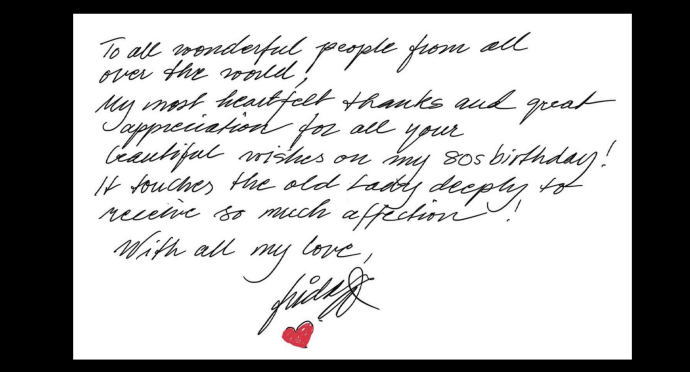 To all wonderful people from all
over the world,
My most heartfelt thanks and great
appreciation for all your
beautiful wishes on my 80s birthday!
It touches the old Lady deeply to
receive so much affection!
With all my love,
Frida